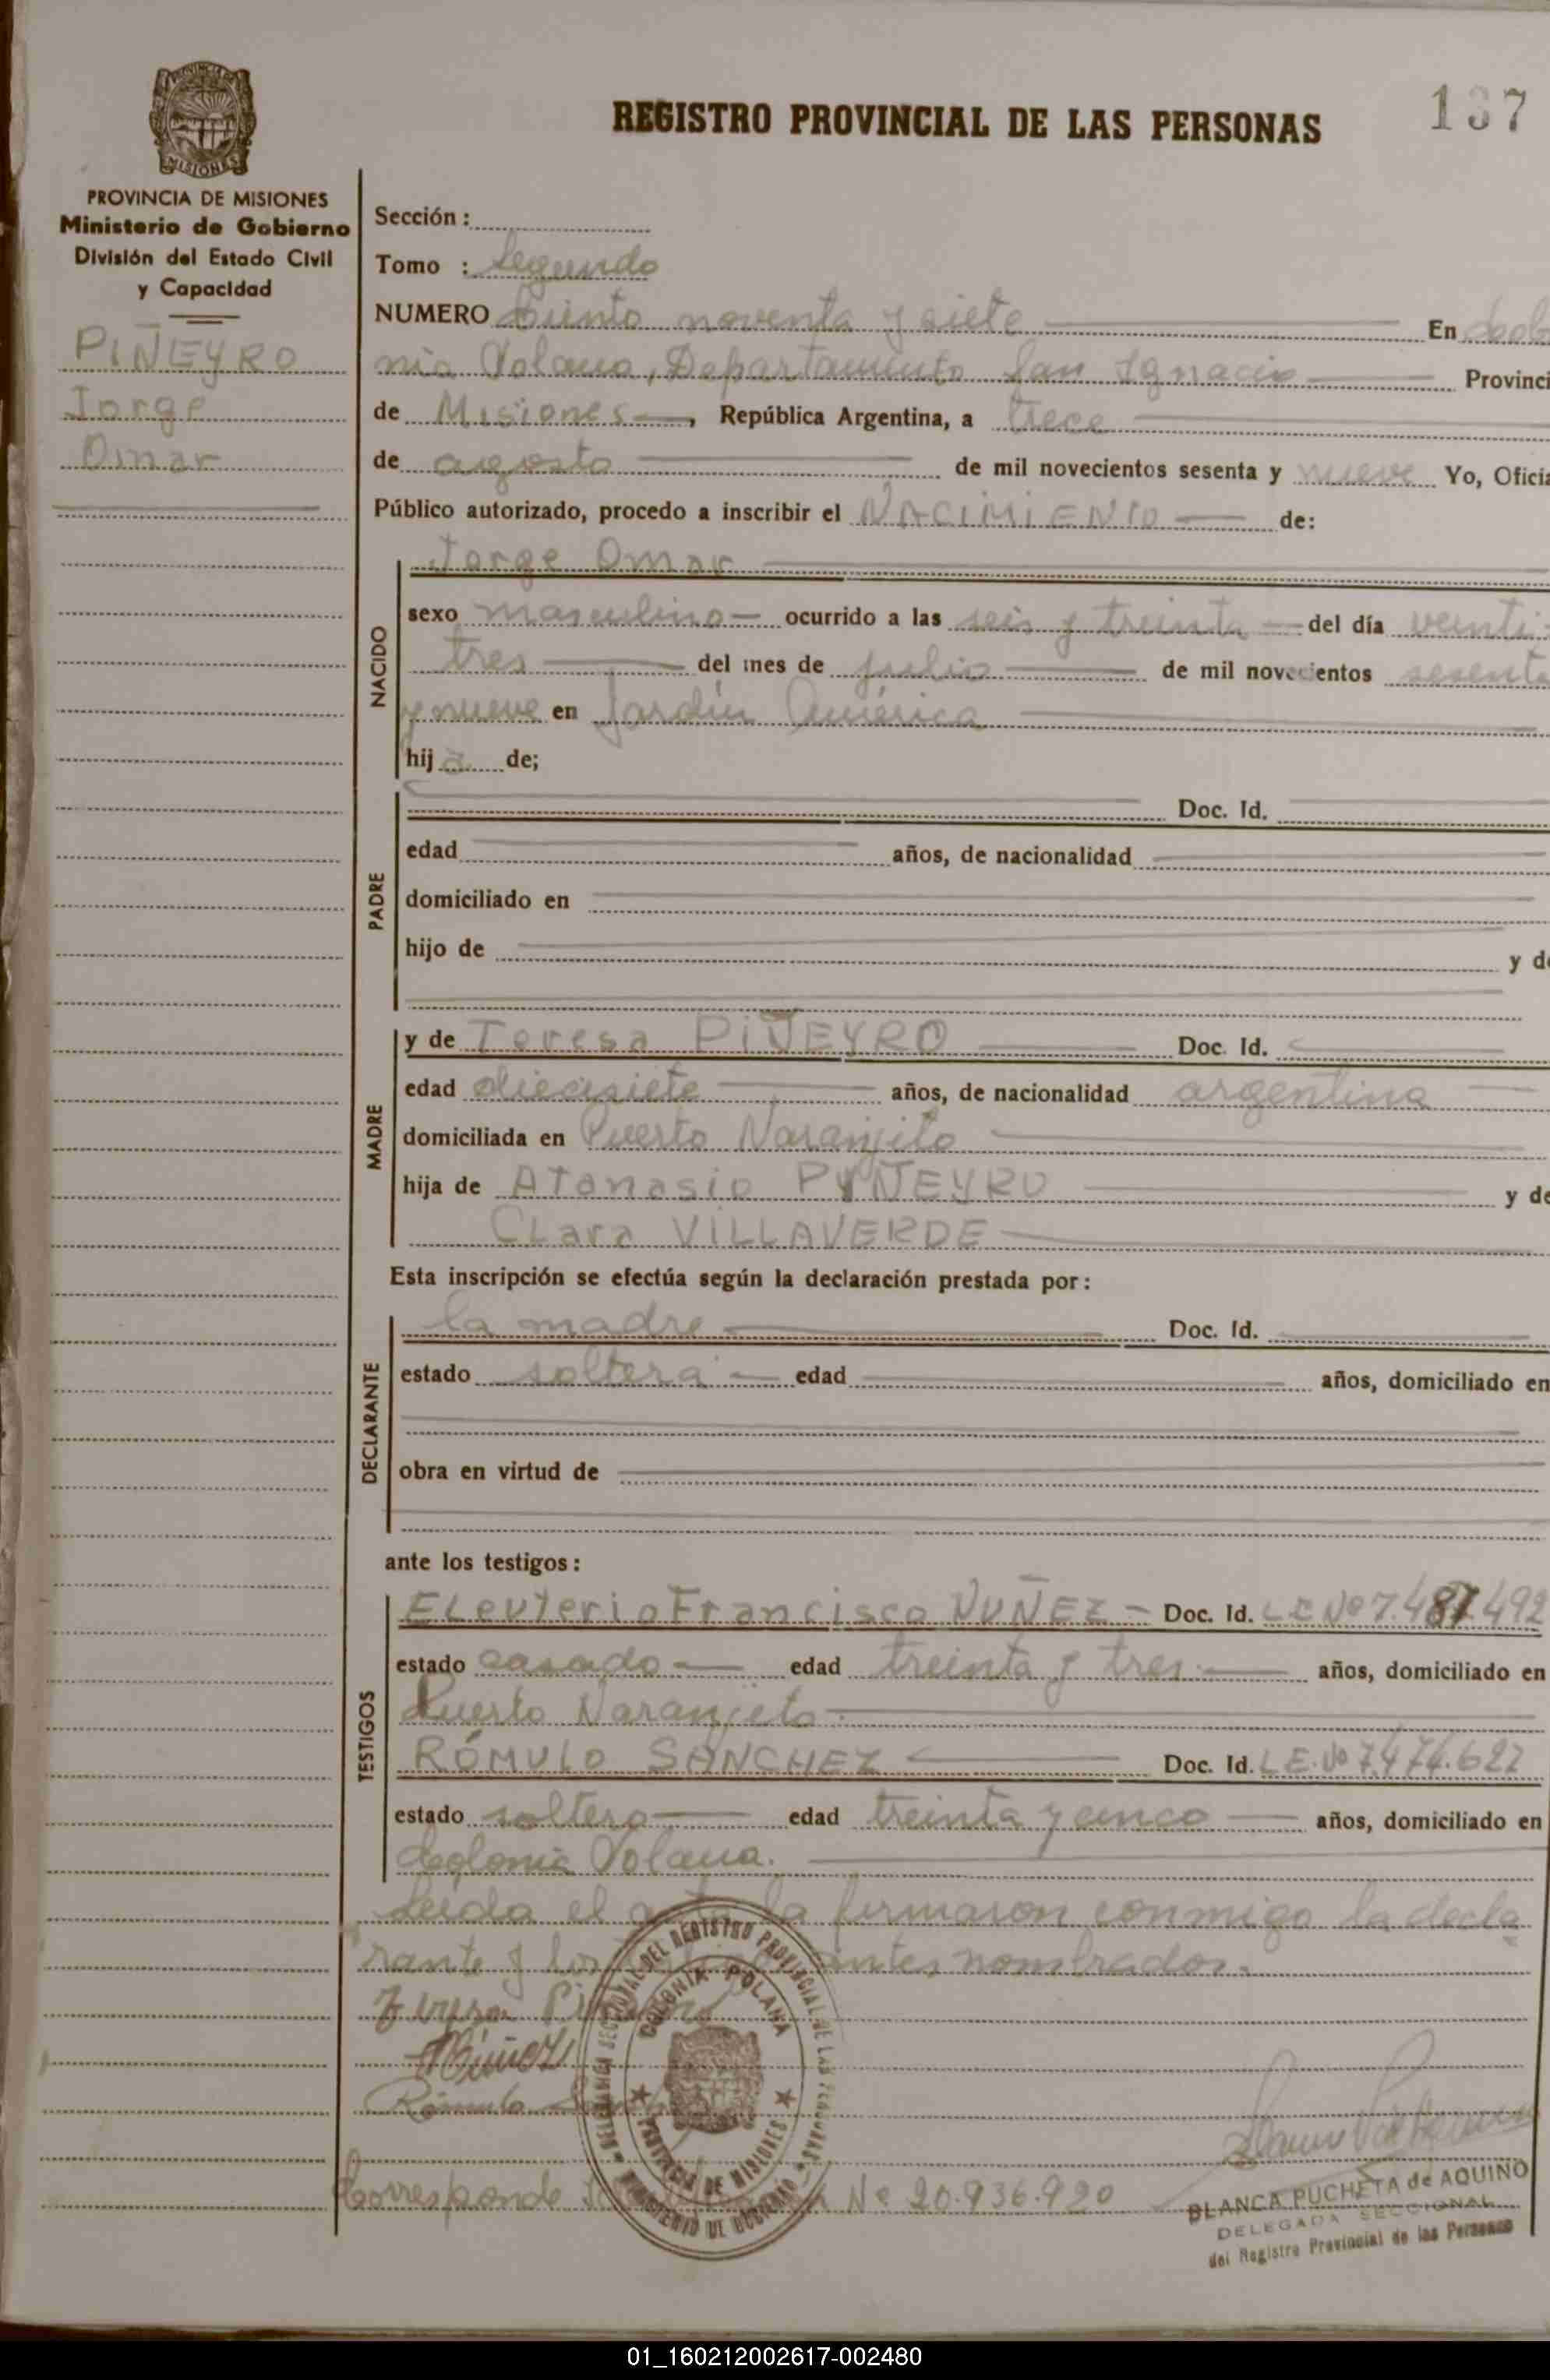 REGISTRO PROVINCIAL DE LAS PERSONAS
137
MISIONES
PROVINCIA DE MISIONES
Ministerio de Gobierno
División del Estado Civil
y Capacidad
PIÑEYRO
Jorge
Omar
Sección :
Tomo : Segundo
NUMERO Ciento noventa y siete En Colo
nia Polana, Departamento San Ignacio Provinci
de Misiones, República Argentina, a trece
de agosto de mil novecientos sesenta y nueve Yo, Oficia
Público autorizado, procedo a inscribir el NACIMIENTO de:
NACIDO
Jorge Omar
sexo masculino ocurrido a las seis y treinta del día veinti
tres del mes de julio de mil novecientos sesenta
y nueve en Jardín América
hij o de;
PADRE
Doc. Id.
edad años, de nacionalidad
domiciliado en
hijo de y de
MADRE
y de Teresa PIÑEYRO Doc. Id.
edad diecisiete años, de nacionalidad argentina
domiciliada en Puerto Naranjito
hija de Atanasio PIÑEYRO y de
Clara VILLAVERDE
Esta inscripción se efectúa según la declaración prestada por :
DECLARANTE
la madre Doc. Id.
estado soltera edad años, domiciliado en
obra en virtud de
ante los testigos :
TESTIGOS
Eleuterio Francisco NUÑEZ Doc. Id. L E Nº 7.487.492
estado casado edad treinta y tres años, domiciliado en
Puerto Naranjito
RÓMULO SANCHEZ Doc. Id. L E. Nº 7.474.627
estado soltero edad treinta y cinco años, domiciliado en
Colonia Polana.
Leída el acta la firmaron conmigo la decla
rante y los antes nombrados.
Teresa Piñeyro
Núñez
Rómulo
DELEGADA SECCIONAL DEL REGISTRO PROVINCIAL DE LAS PERSONAS
COLONIA POLANA
PROVINCIA DE MISIONES
MINISTERIO DE GOBIERNO
Corresponde Nº 20.936.920
BLANCA PUCHETA de AQUINO
DELEGADA SECCIONAL
del Registro Provincial de las Personas
01_160212002617-002480